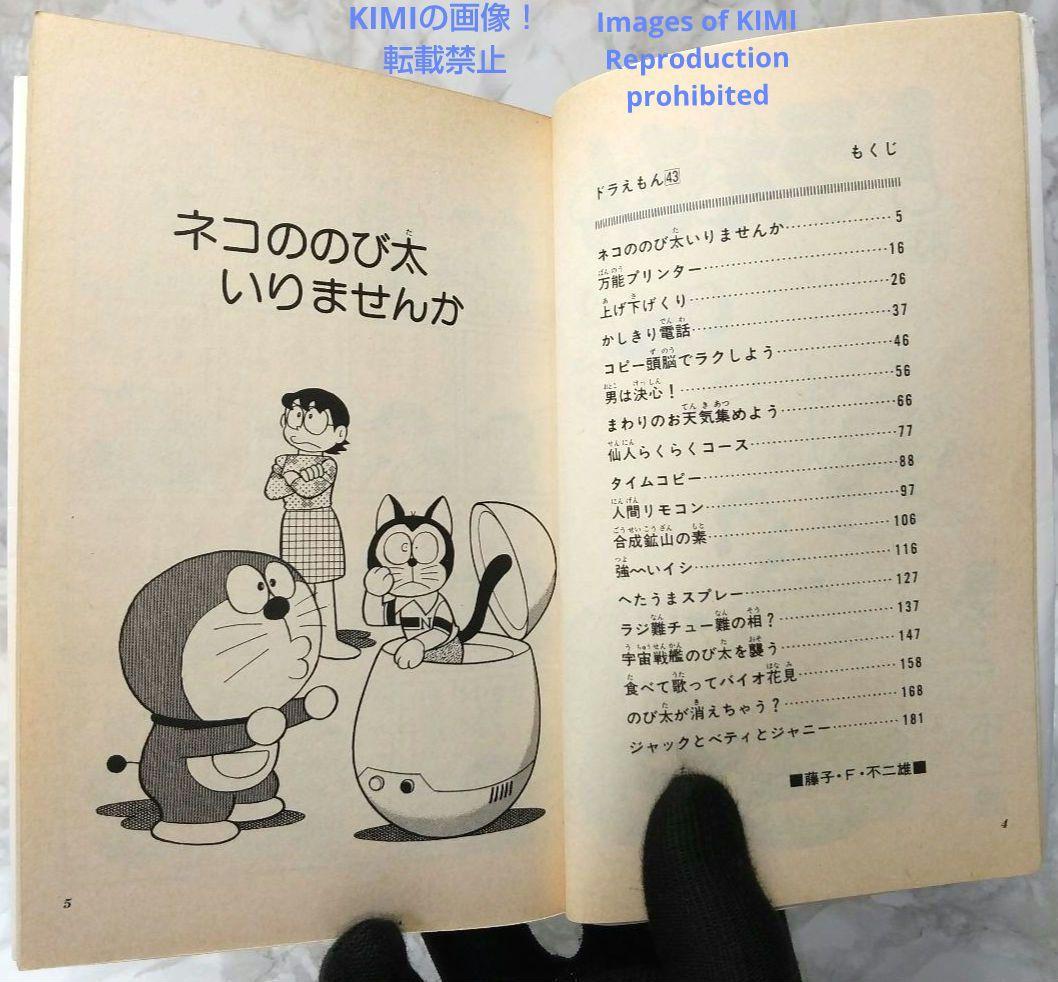 KIMIの画像！
転載禁止
Images of KIMI
Reproduction
prohibited
もくじ
ドラえもん43
ネコののび太いりませんか 5
万能プリンター 16
上げ下げくり 26
かしきり電話 37
コピー頭脳でラクしよう 46
男は決心！ 56
まわりのお天気集めよう 66
仙人らくらくコース 77
タイムコピー 88
人間リモコン 97
合成鉱山の素 106
強〜いイシ 116
へたうまスプレー 127
ラジ難チュー難の相？ 137
宇宙戦艦のび太を襲う 147
食べて歌ってバイオ花見 158
のび太が消えちゃう？ 168
ジャックとベティとジャニー 181
■藤子・F・不二雄■
4
ネコののび太
いりませんか
N
5